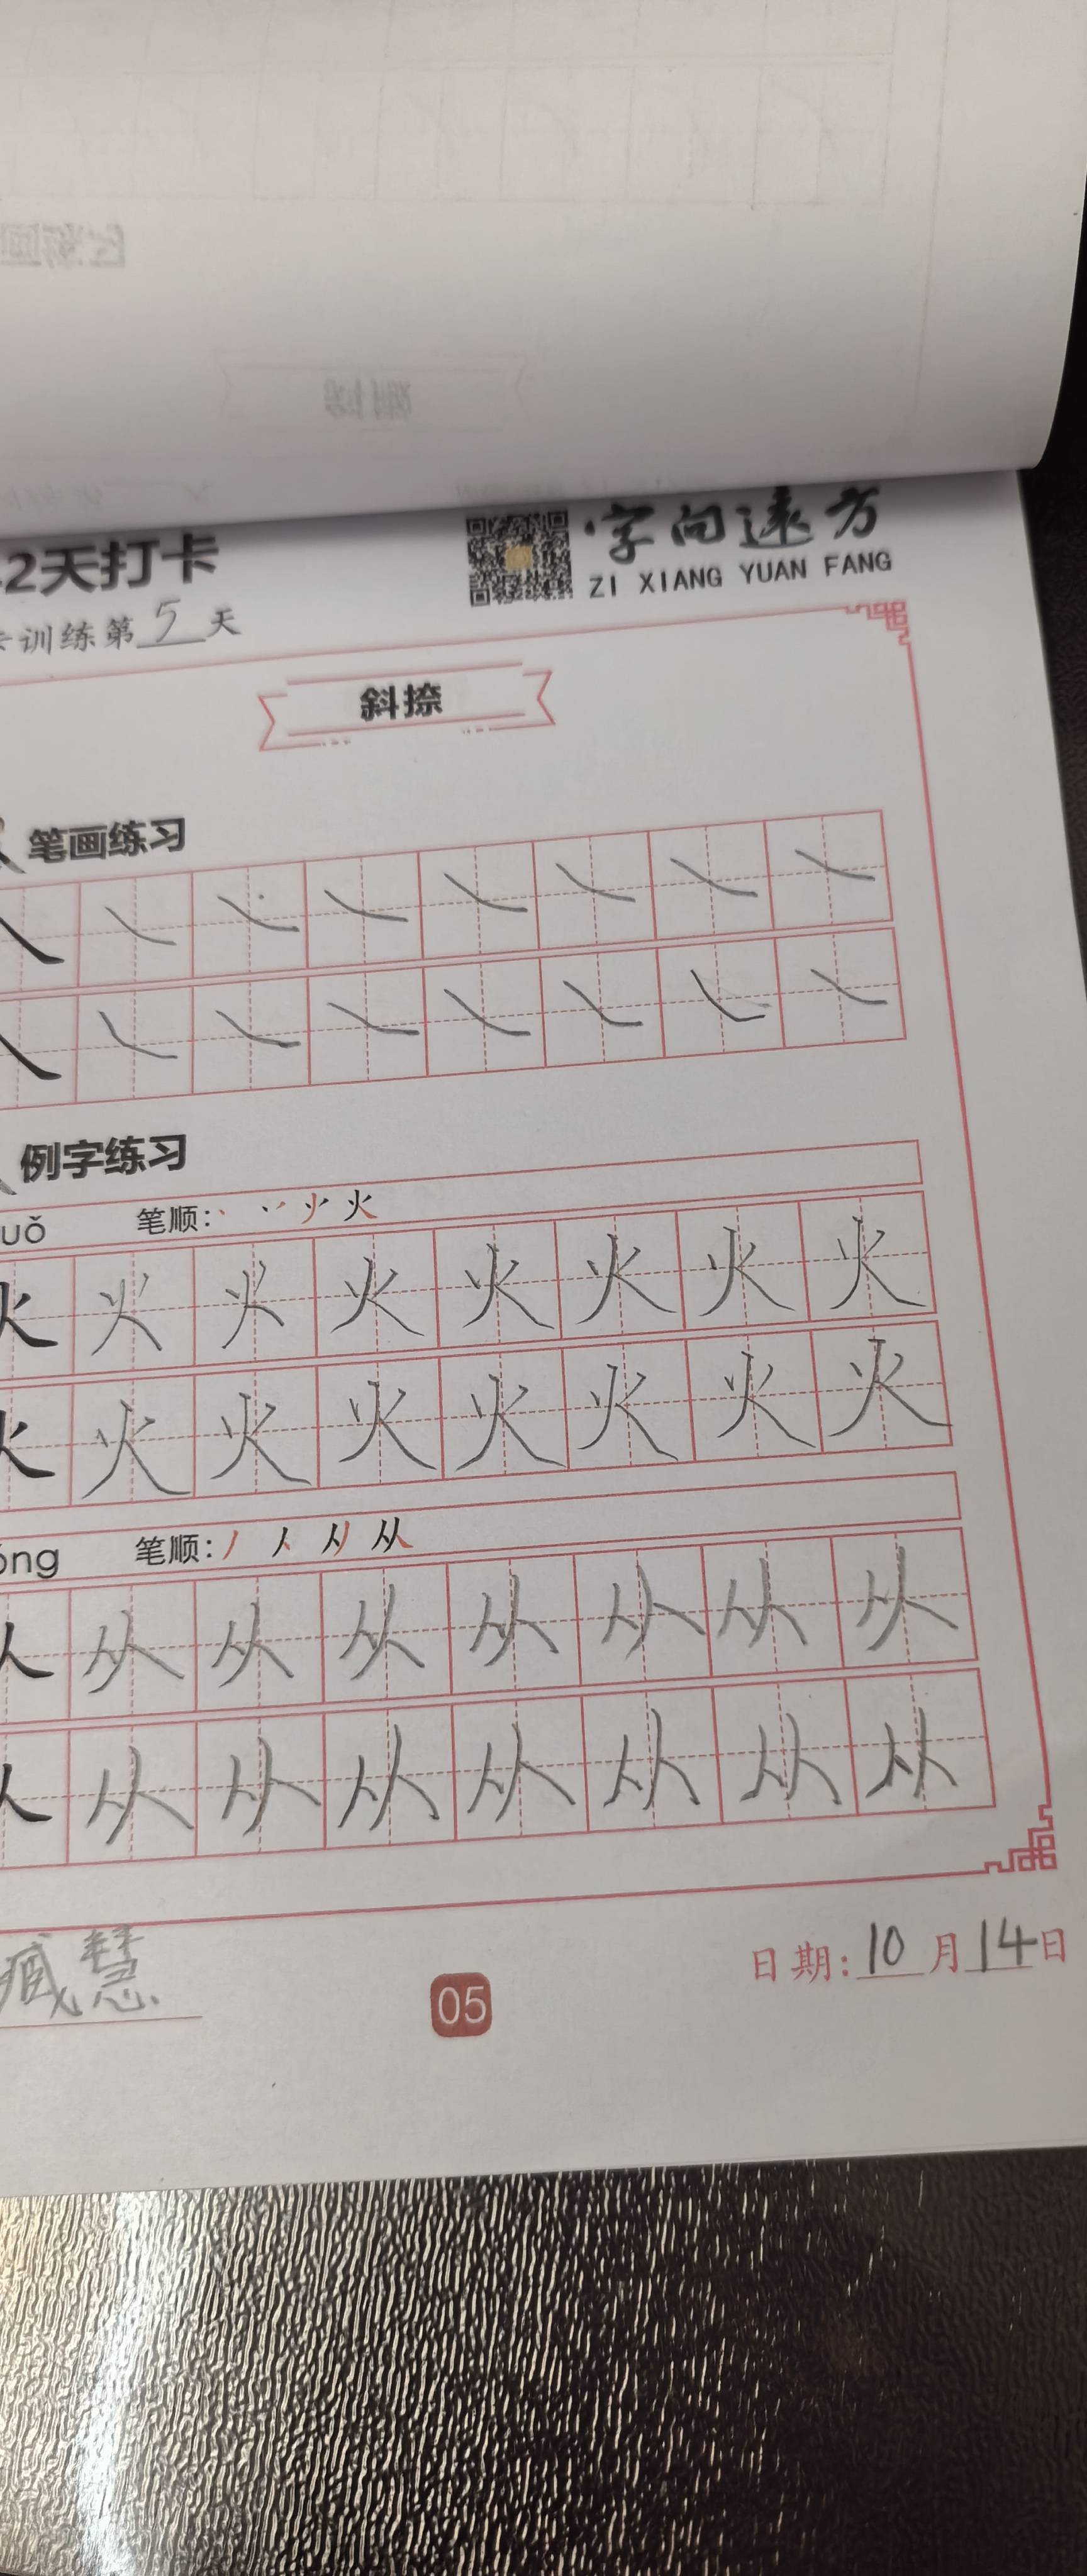 字向远方
2天打卡
ZI XIANG YUAN FANG
训练第5天
斜捺
笔画练习
例字练习
uǒ 笔顺: 火
火 火 火 火 火 火 火 火
火 火 火 火 火 火 火 火
óng 笔顺: 丿 人 从
从 从 从 从 从 从 从
从 从 从 从 从 从 从
臧慧
05
日期: 10月14日